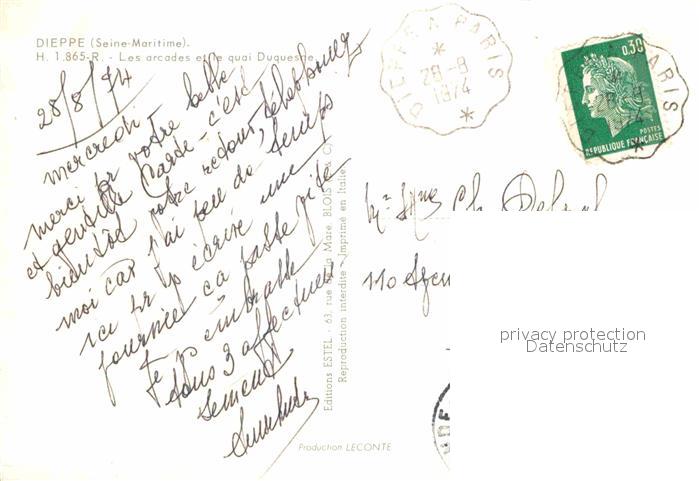 DIEPPE (Seine-Maritime).
H. 1.865-R. - Les arcades et le quai Duquesne
28/8/74
mercredi
merci pr votre belle
et gentille Carde - c'est
bientôt votre retour,
moi car j'ai peu de temps
ici pr vs écrire une
journée ça passe vite
Je vs embrasse
tous 3 affectueu
sement
Editions ESTEL - 63, rue de La Mare, BLOIS
Reproduction interdite - Imprimé en Italie
Production LECONTE
DIEPPE A PARIS
28-8
1974
0,30
POSTES
REPUBLIQUE FRANÇAISE
A PARIS
28-8
1974
Mr Mme Ch
110
privacy protection
Datenschutz